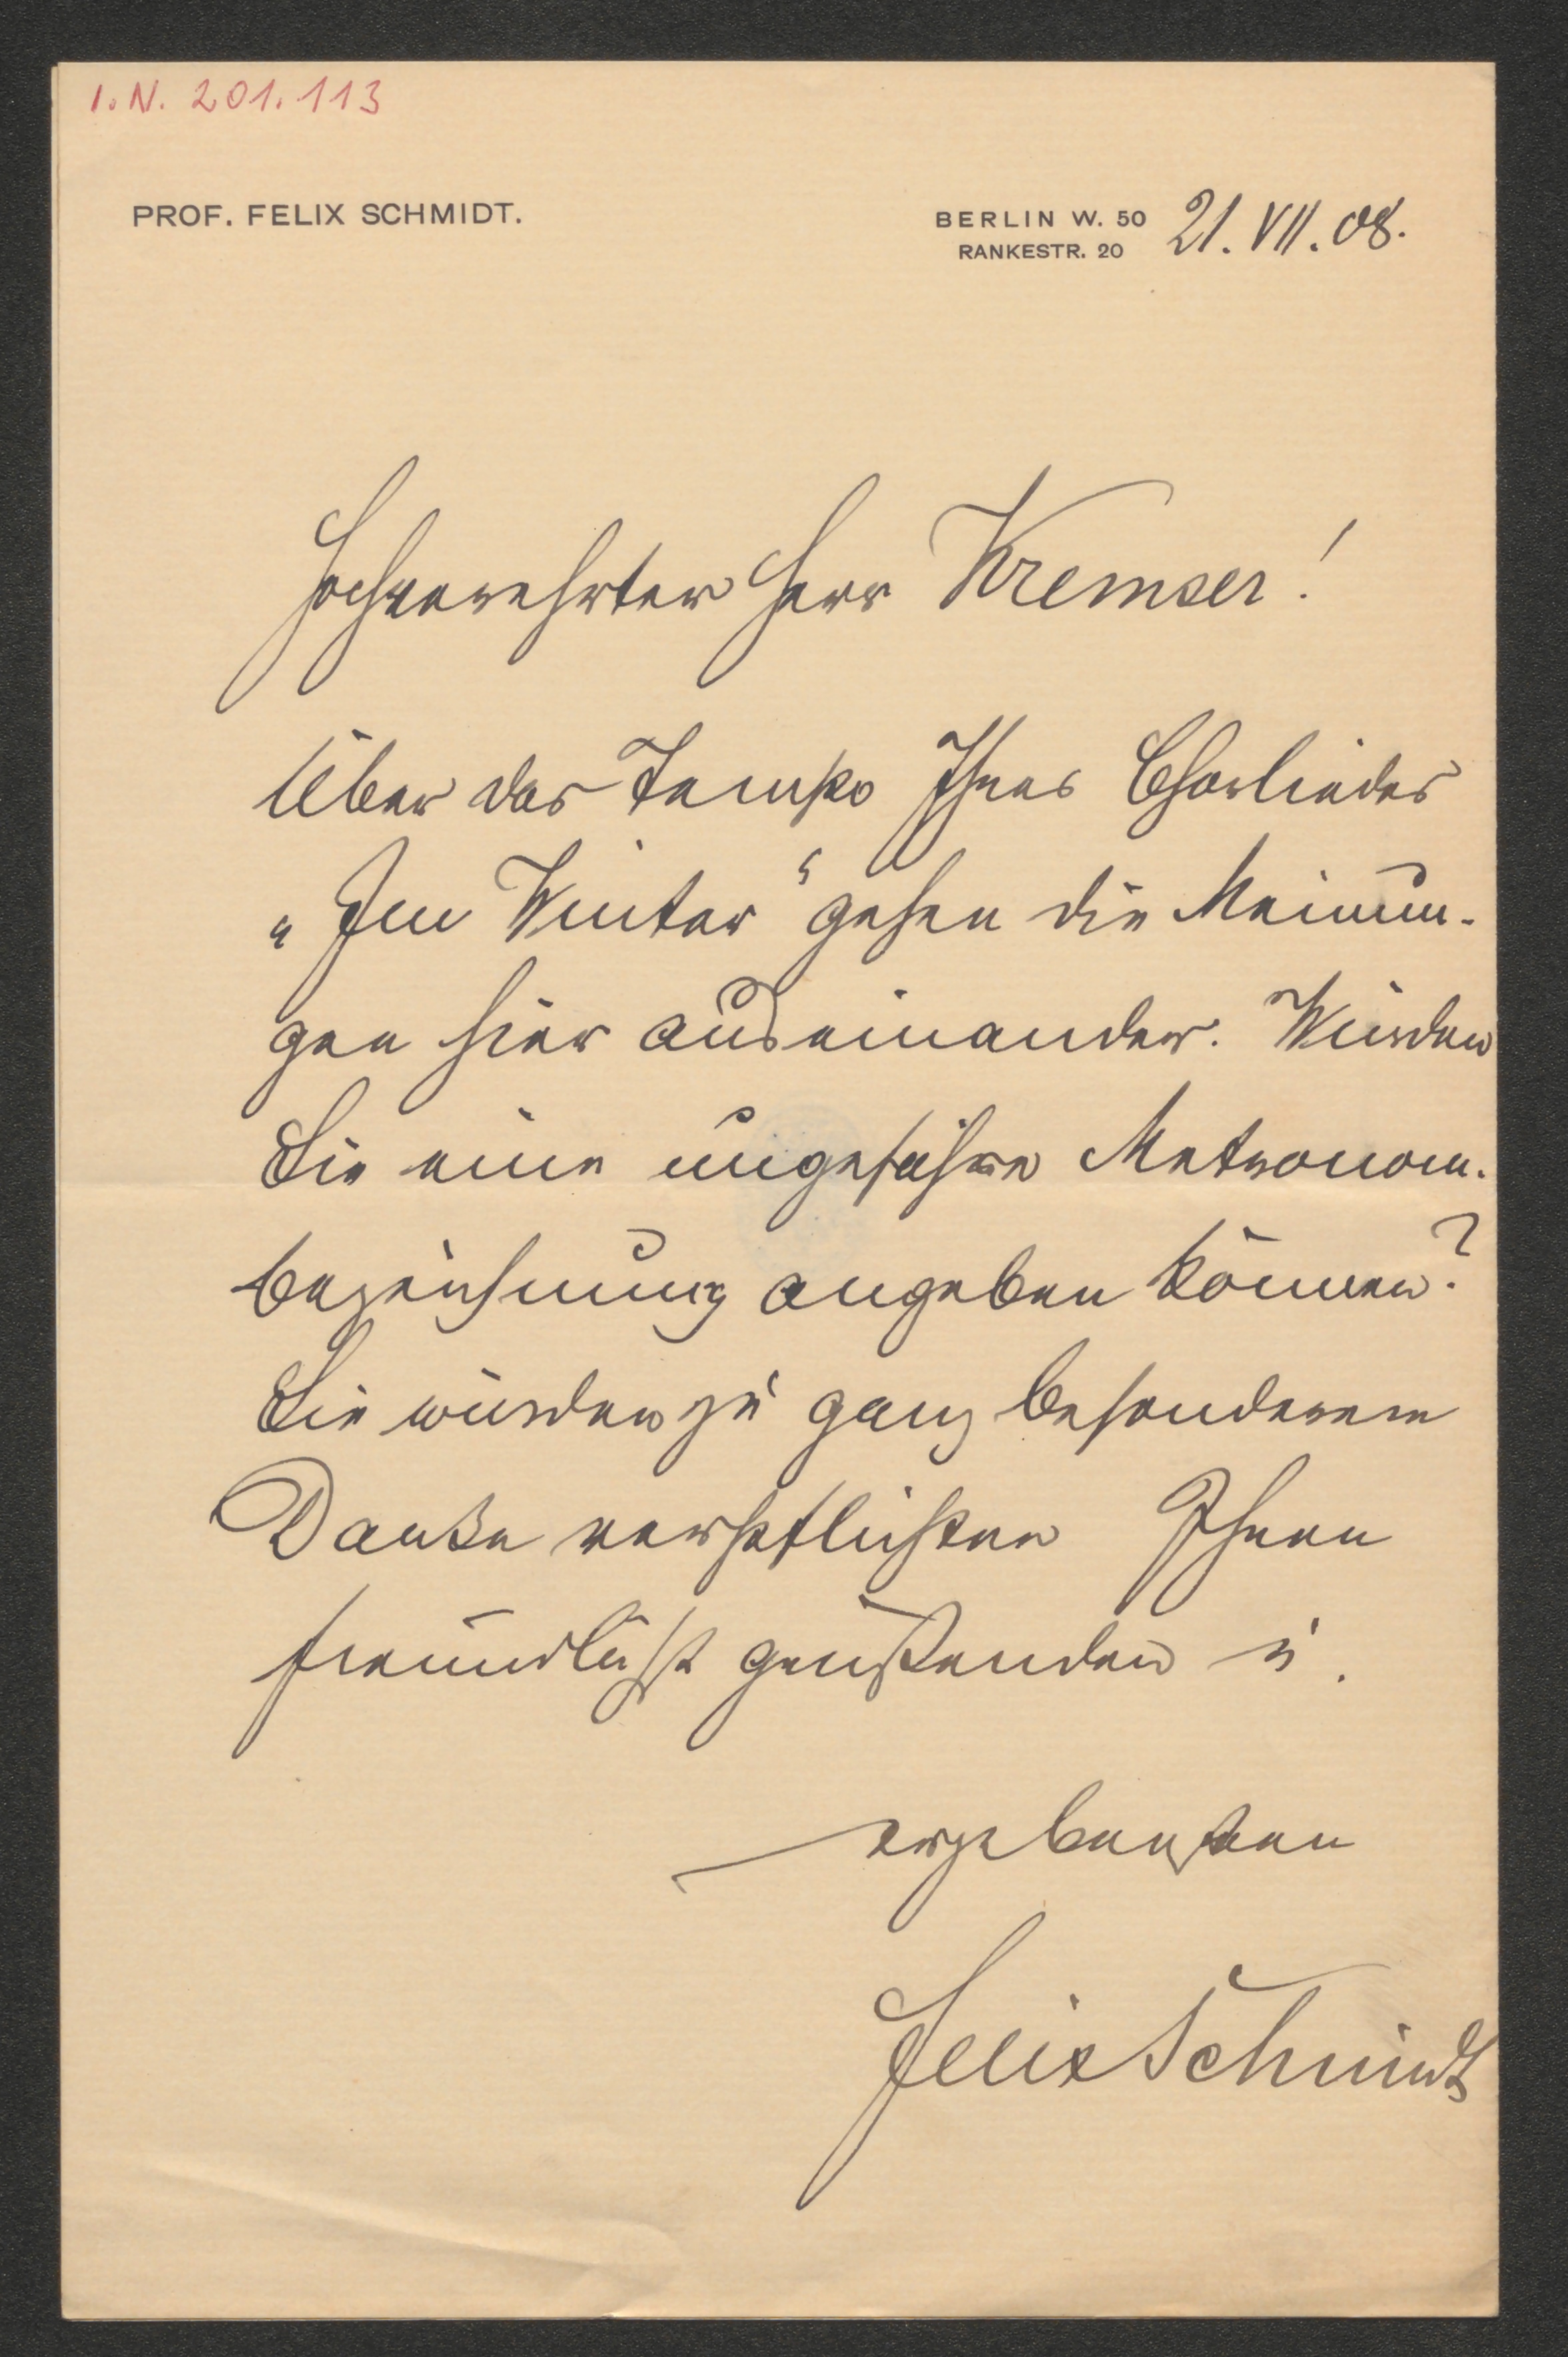 I.N. 201.113
PROF. FELIX SCHMIDT.
BERLIN W. 50 21. VII. 08.
RANKESTR. 20
Hochverehrter Herr Kremser!
Über das Tempo Ihres Chorliedes
„Im Winter“ gehen die Meinun-
gen hier auseinander. Würden
Sie eine ungefähre Metronom-
bezeichnung angeben können?
Sie würden zu ganz besonderem
Danke verpflichten Ihren
freundlichst grüßenden u.
ergebensten
Felix Schmidt